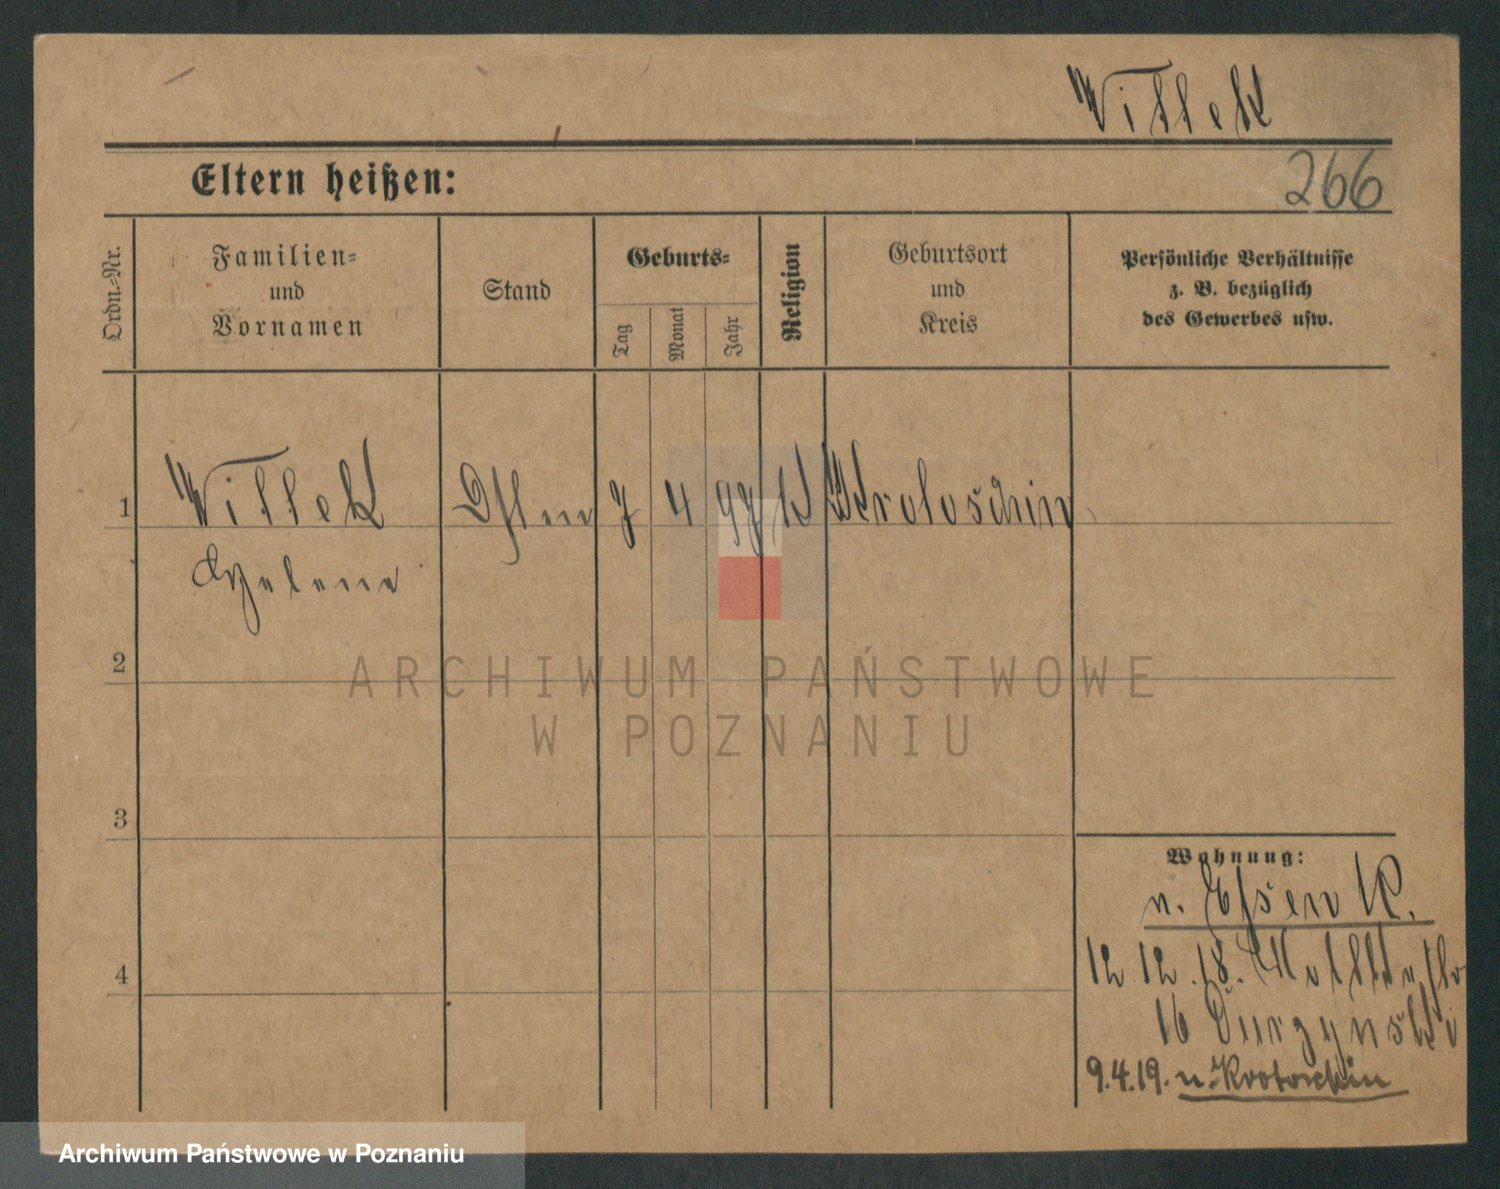 Willek
Eltern heißen:
266
Ordn.-Nr.
Familien-
und
Vornamen
Stand
Geburts-
Tag
Monat
Jahr
Religion
Geburtsort
und
Kreis
Persönliche Verhältnisse
z. B. bezüglich
des Gewerbes usw.
1
Willek
4 97 K Krotoschin
Helene
2
ARCHIWUM PAŃSTWOWE
W POZNANIU
3
Wohnung:
n. Essen R.
4
12.12.18.
16
9.4.19. n. Krotoschin
Archiwum Państwowe w Poznaniu